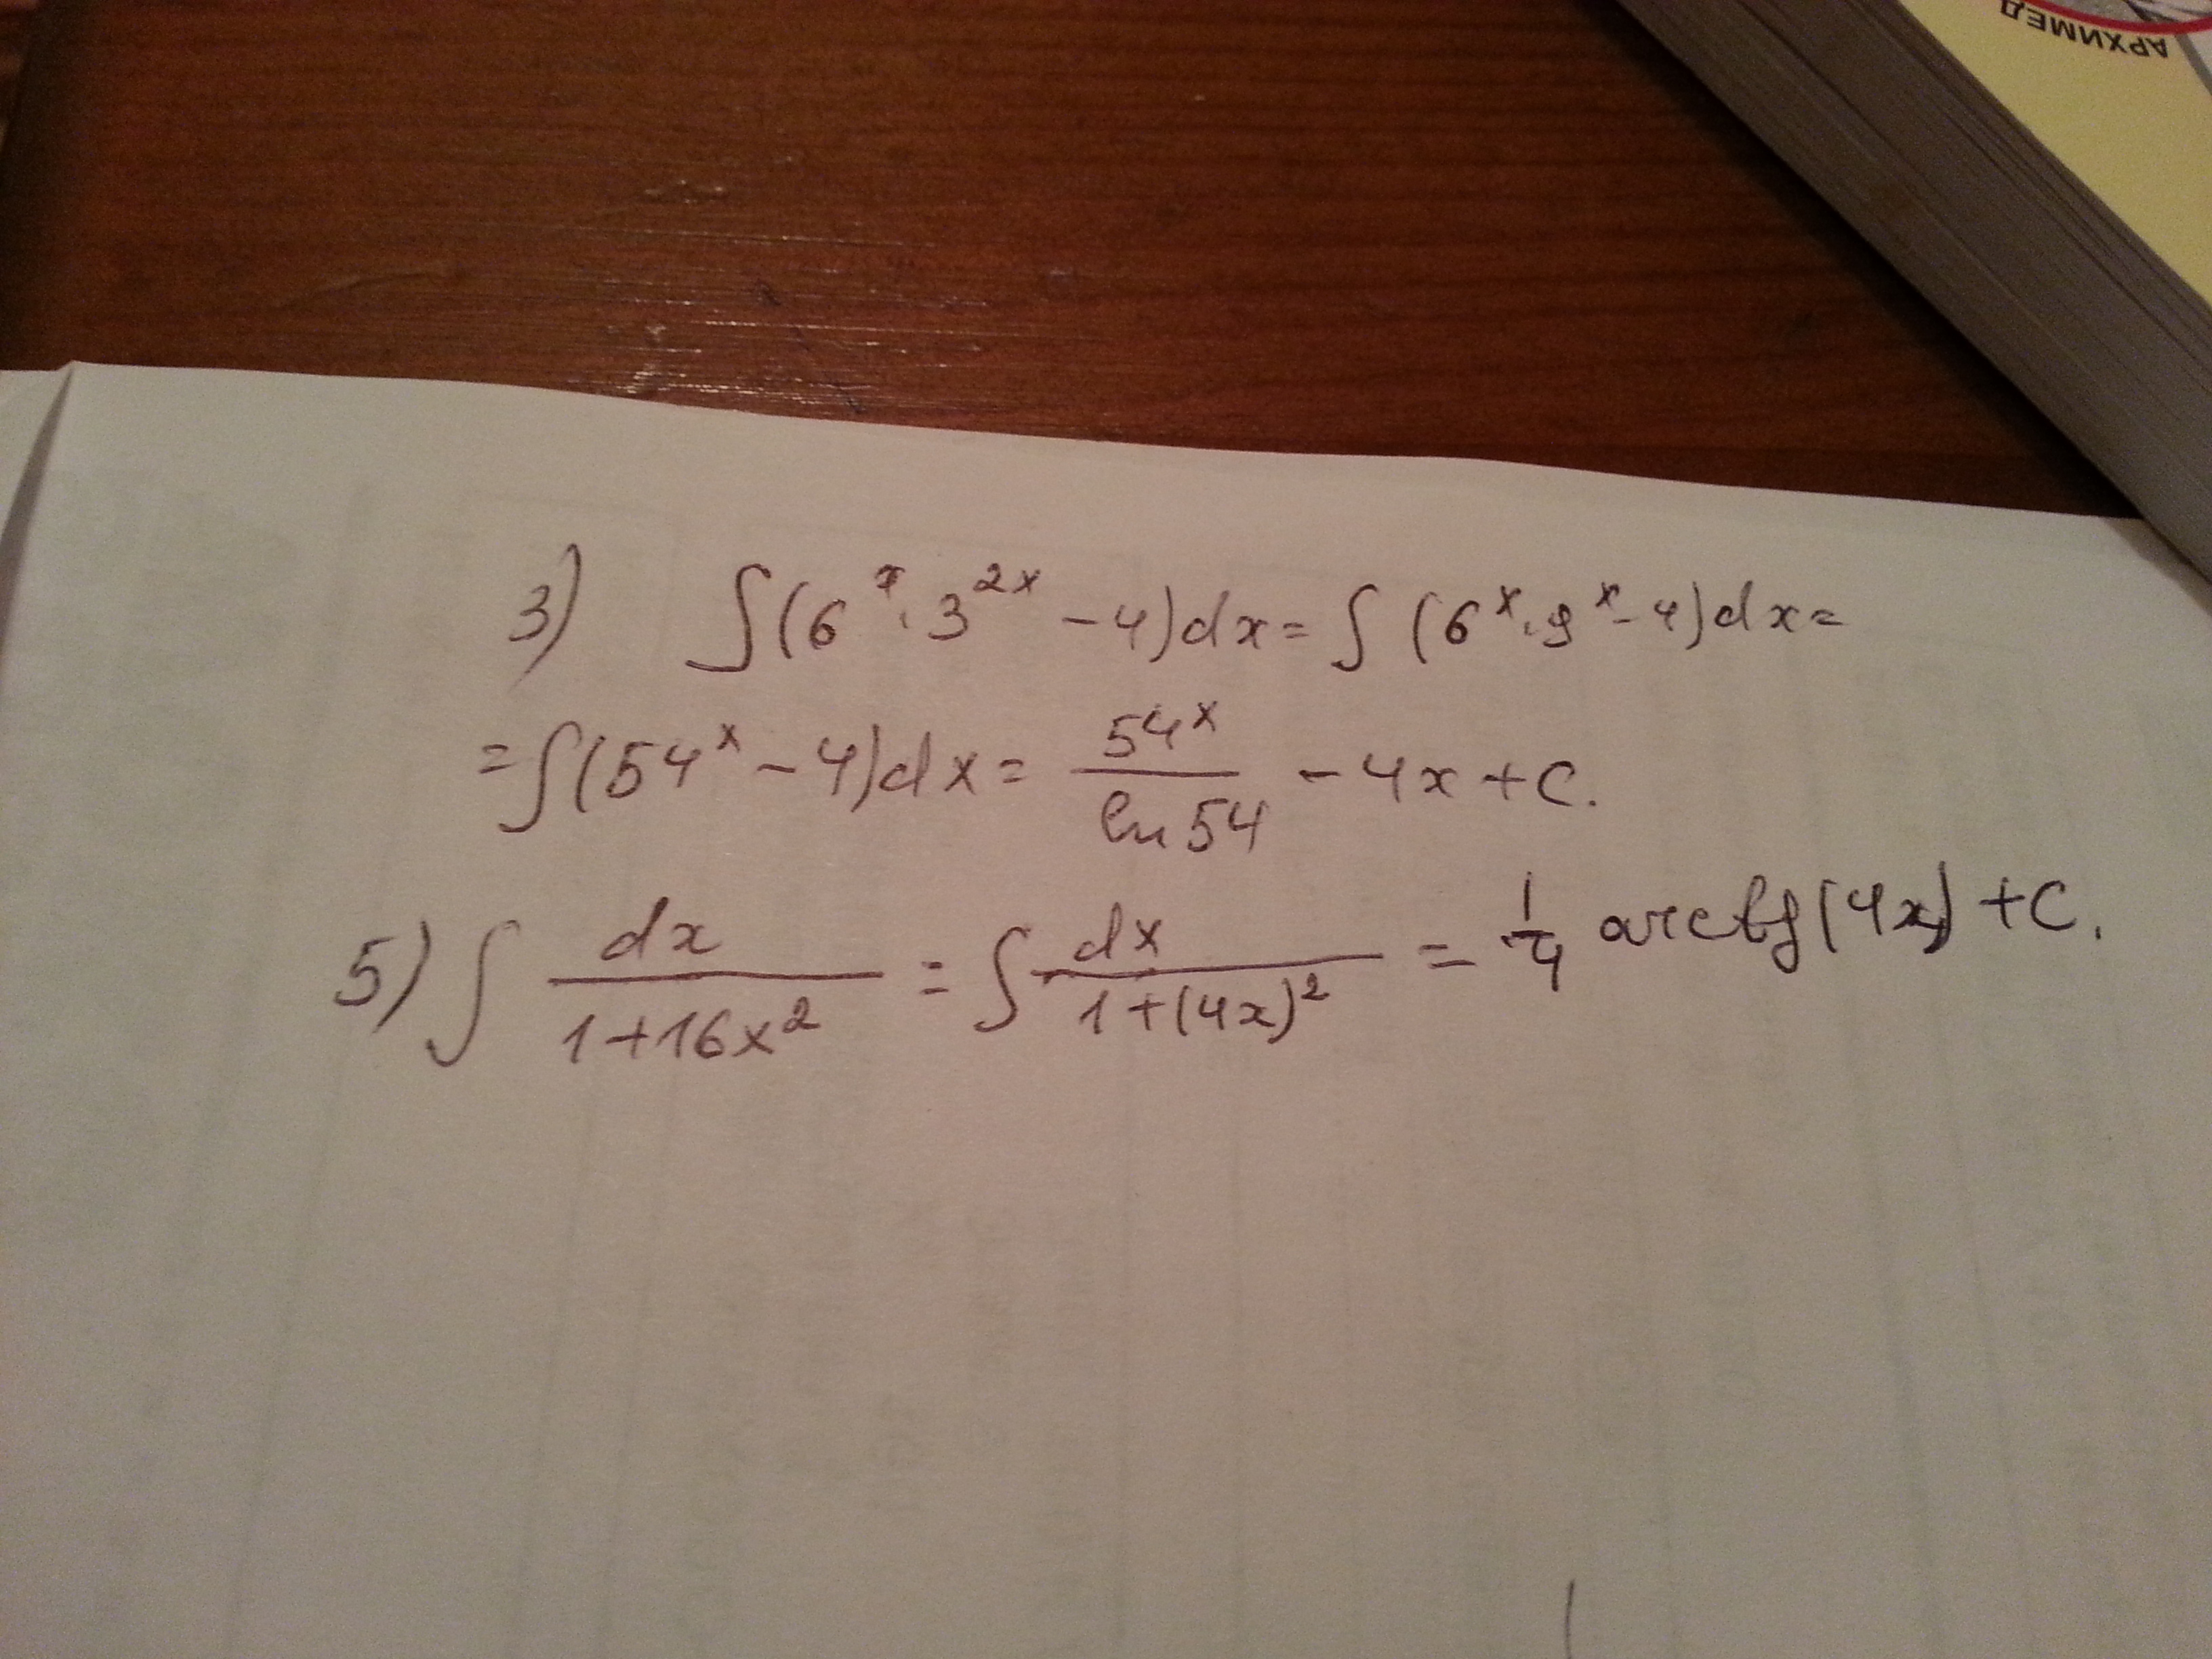 АРХИМЕД
3) ∫(6^x · 3^{2x} - 4)dx = ∫(6^x · 9^x - 4)dx =
= ∫(54^x - 4)dx = \frac{54^x}{ln 54} - 4x + C.
5) ∫ \frac{dx}{1+16x^2} = ∫ \frac{dx}{1+(4x)^2} = \frac{1}{4} arctg(4x) + C.